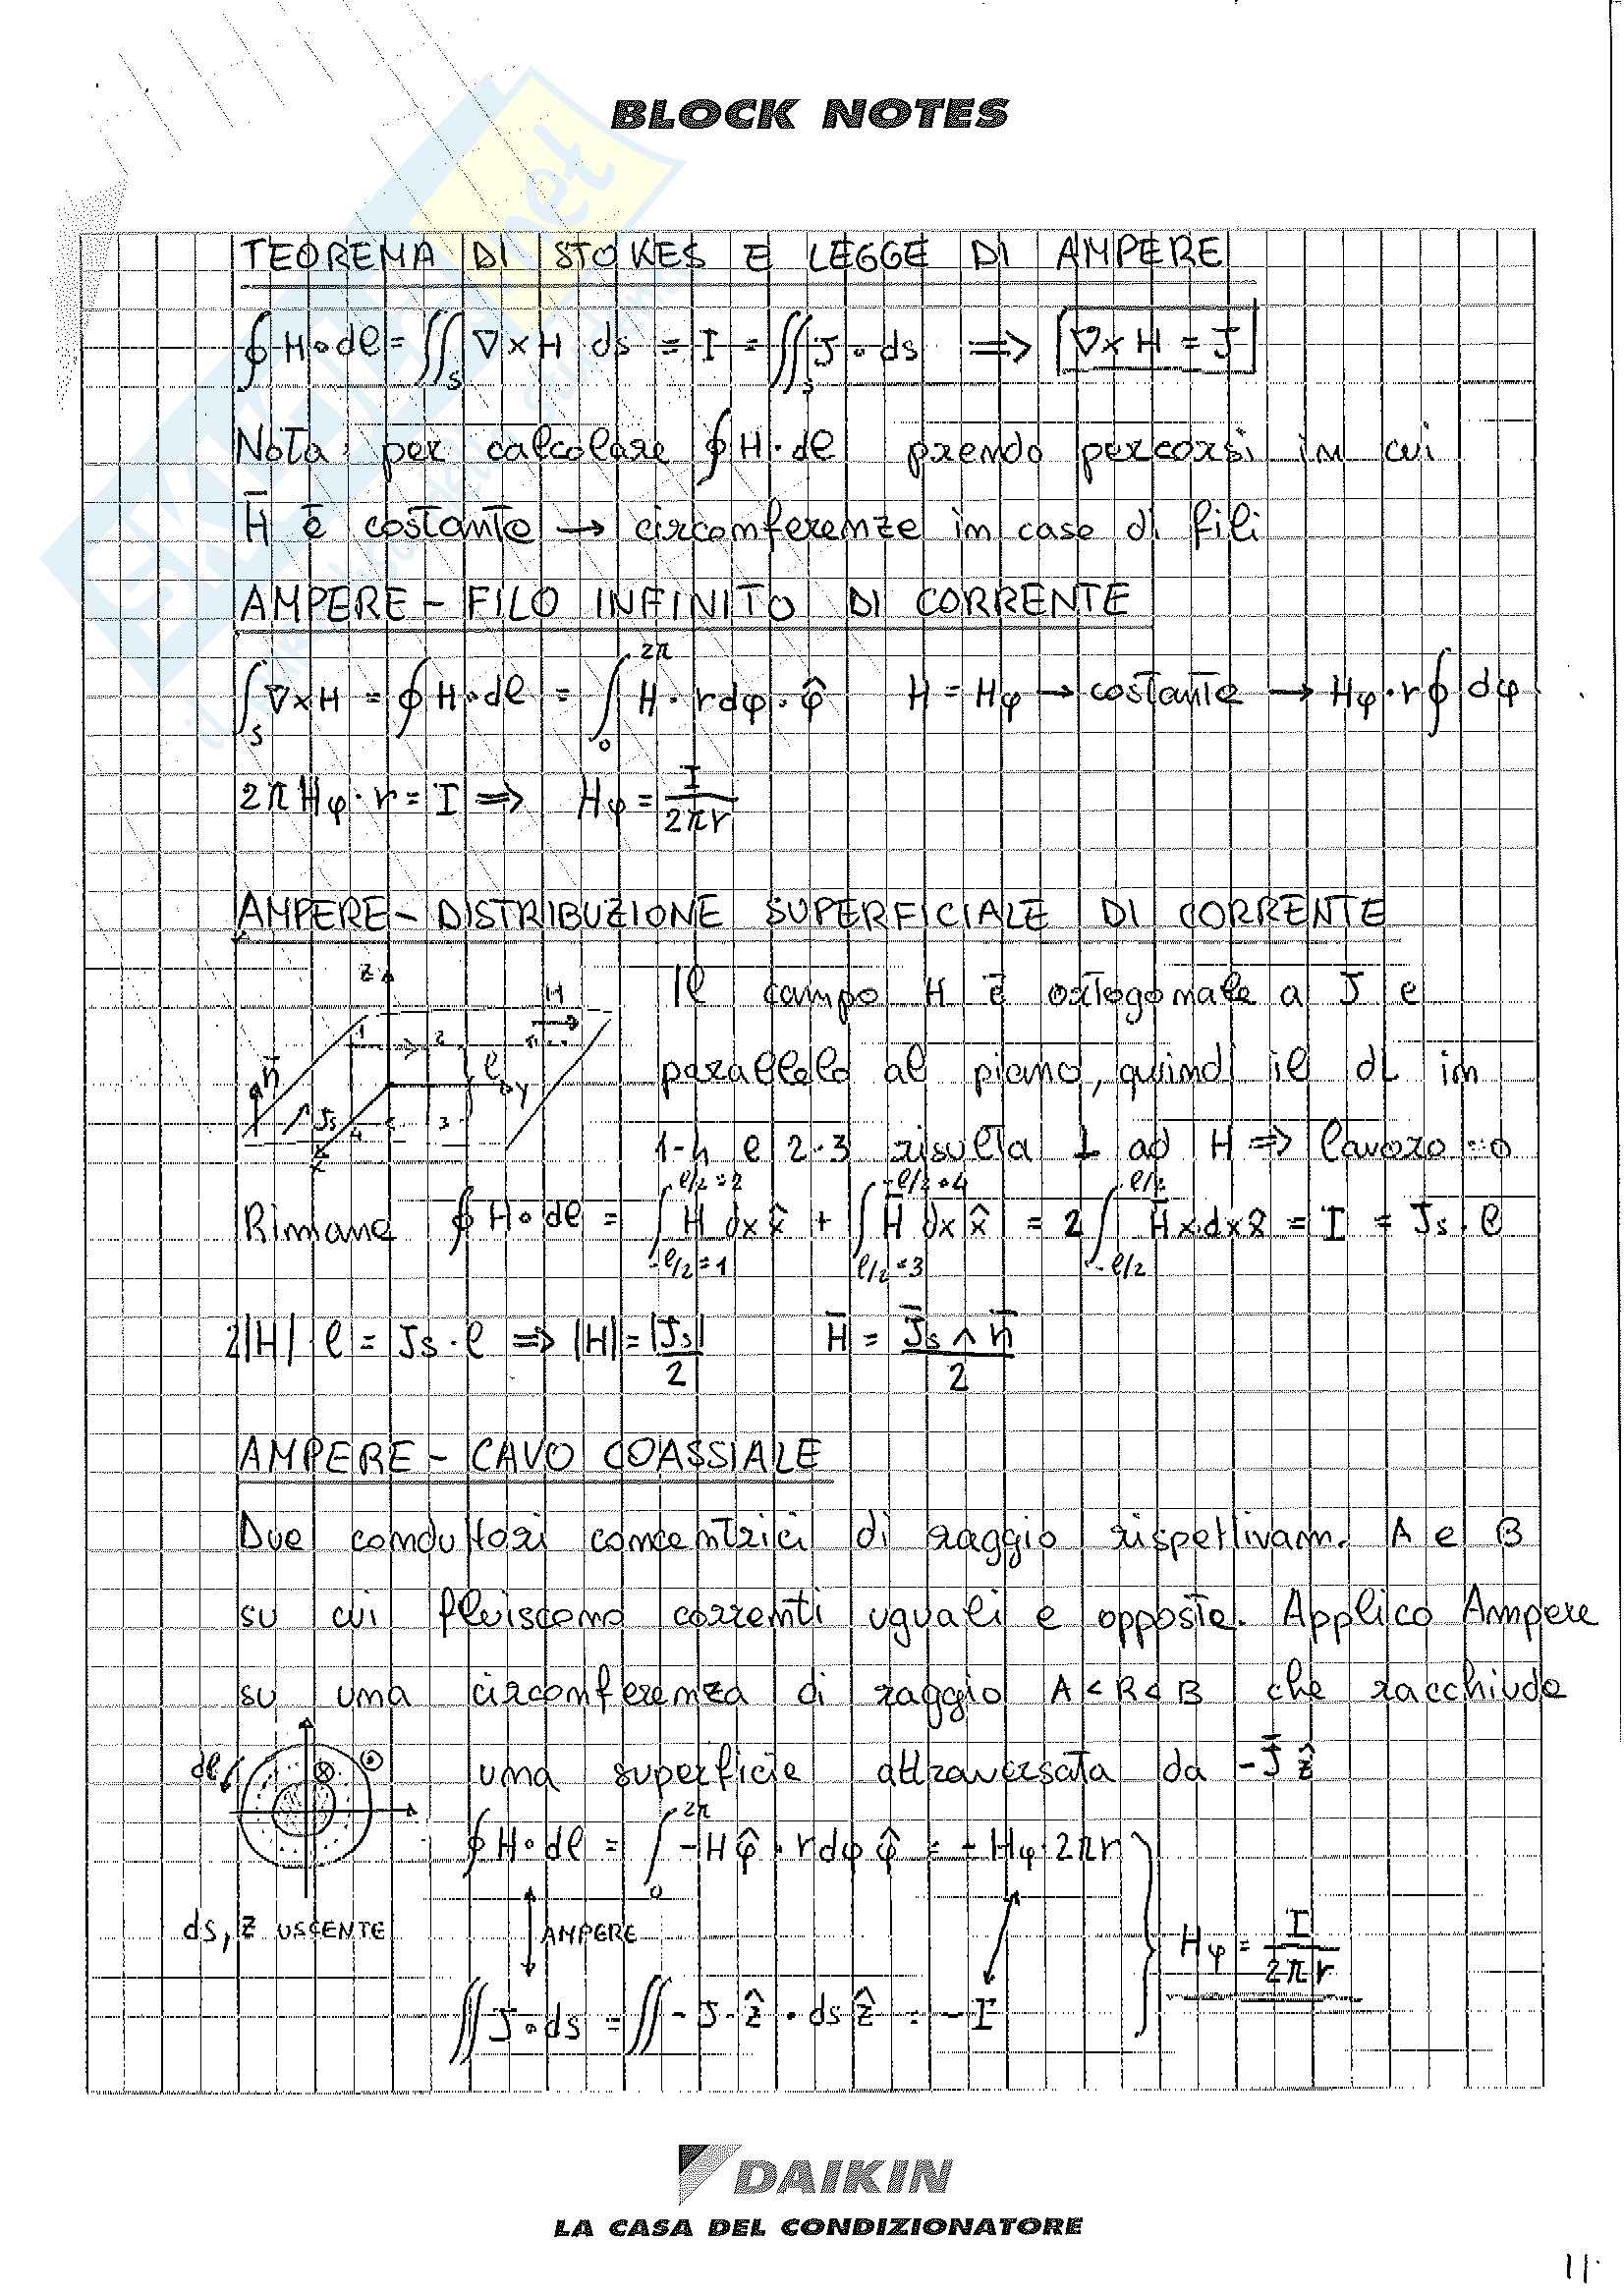 BLOCK NOTES
TEOREMA DI STOKES E LEGGE DI AMPERE
∮ H∘dℓ = ∬_S ∇×H ds = I = ∬_S J∘ds ⟹ ∇×H = J
Nota: per calcolare ∮ H·dℓ prendo percorsi in cui
H̄ è costante → circonferenze in caso di fili
AMPERE – FILO INFINITO DI CORRENTE
∫_S ∇×H = ∮ H∘dℓ = ∫_0^{2π} H·rdφ·φ̂ H = Hφ → costante → Hφ·r ∮ dφ
2π Hφ·r = I ⟹ Hφ = I/2πr
AMPERE – DISTRIBUZIONE SUPERFICIALE DI CORRENTE
Il campo H è ortogonale a J e
parallelo al piano, quindi il dL in
1-4 e 2-3 risulta ⊥ ad H ⟹ lavoro = 0
z H 1 2 n̄ ℓ y Js 4 3 x
Rimane ∮ H∘dℓ = ∫_{-ℓ/2=1}^{ℓ/2=2} H dx x̂ + ∫_{ℓ/2=3}^{-ℓ/2=4} H̄ dx x̂ = 2∫_{-ℓ/2}^{ℓ/2} H̄x·dx x̂ = I = Js·ℓ
2|H| ℓ = Js·ℓ ⟹ |H| = |Js|/2 H̄ = J̄s ∧ n̄/2
AMPERE – CAVO COASSIALE
Due conduttori concentrici di raggio rispettivam. A e B
su cui fluiscono correnti uguali e opposte. Applico Ampere
su una circonferenza di raggio A<R<B che racchiude
una superficie attraversata da -J̄ ẑ
dℓ
∮ H∘dℓ = ∫_0^{2π} -Hφ̂·rdφ φ̂ = -Hφ·2πr
ds, z USCENTE
AMPERE
Hφ = I/2πr
∬ J∘ds = ∬ -J·ẑ·ds ẑ = -I
DAIKIN
LA CASA DEL CONDIZIONATORE
11